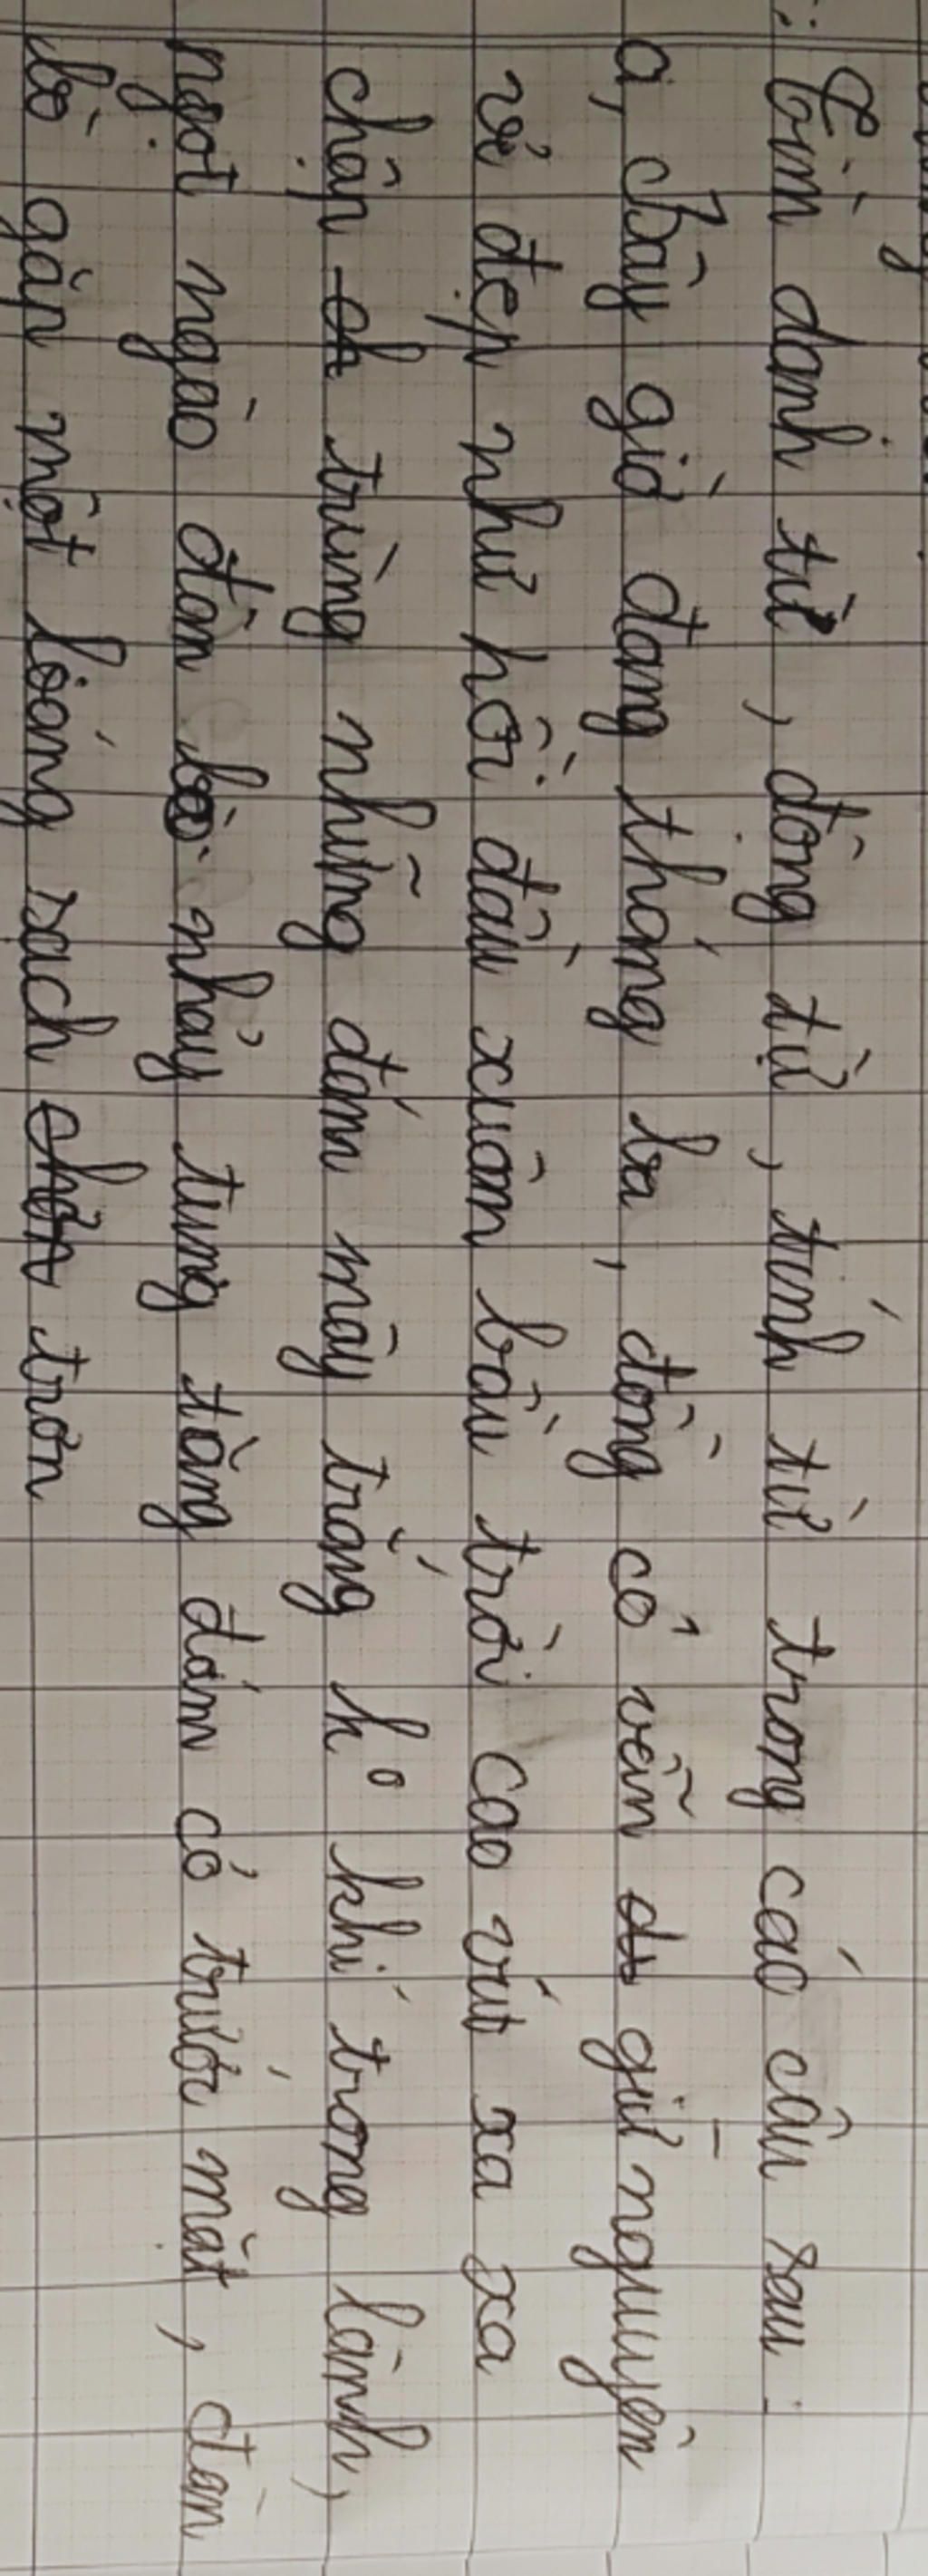 Tìm danh từ, động từ, tính từ trong các câu sau:
a, Bây giờ đang tháng ba, đồng cỏ vẫn giữ nguyên
vẻ đẹp như hồi đầu xuân bầu trời cao vút xa xa
chập trùng những đám mây trắng ko khí trong lành,
ngọt ngào đàn bò nhảy tung tăng đám cỏ trước mặt, đàn
bò gặp một loáng sạch trơn